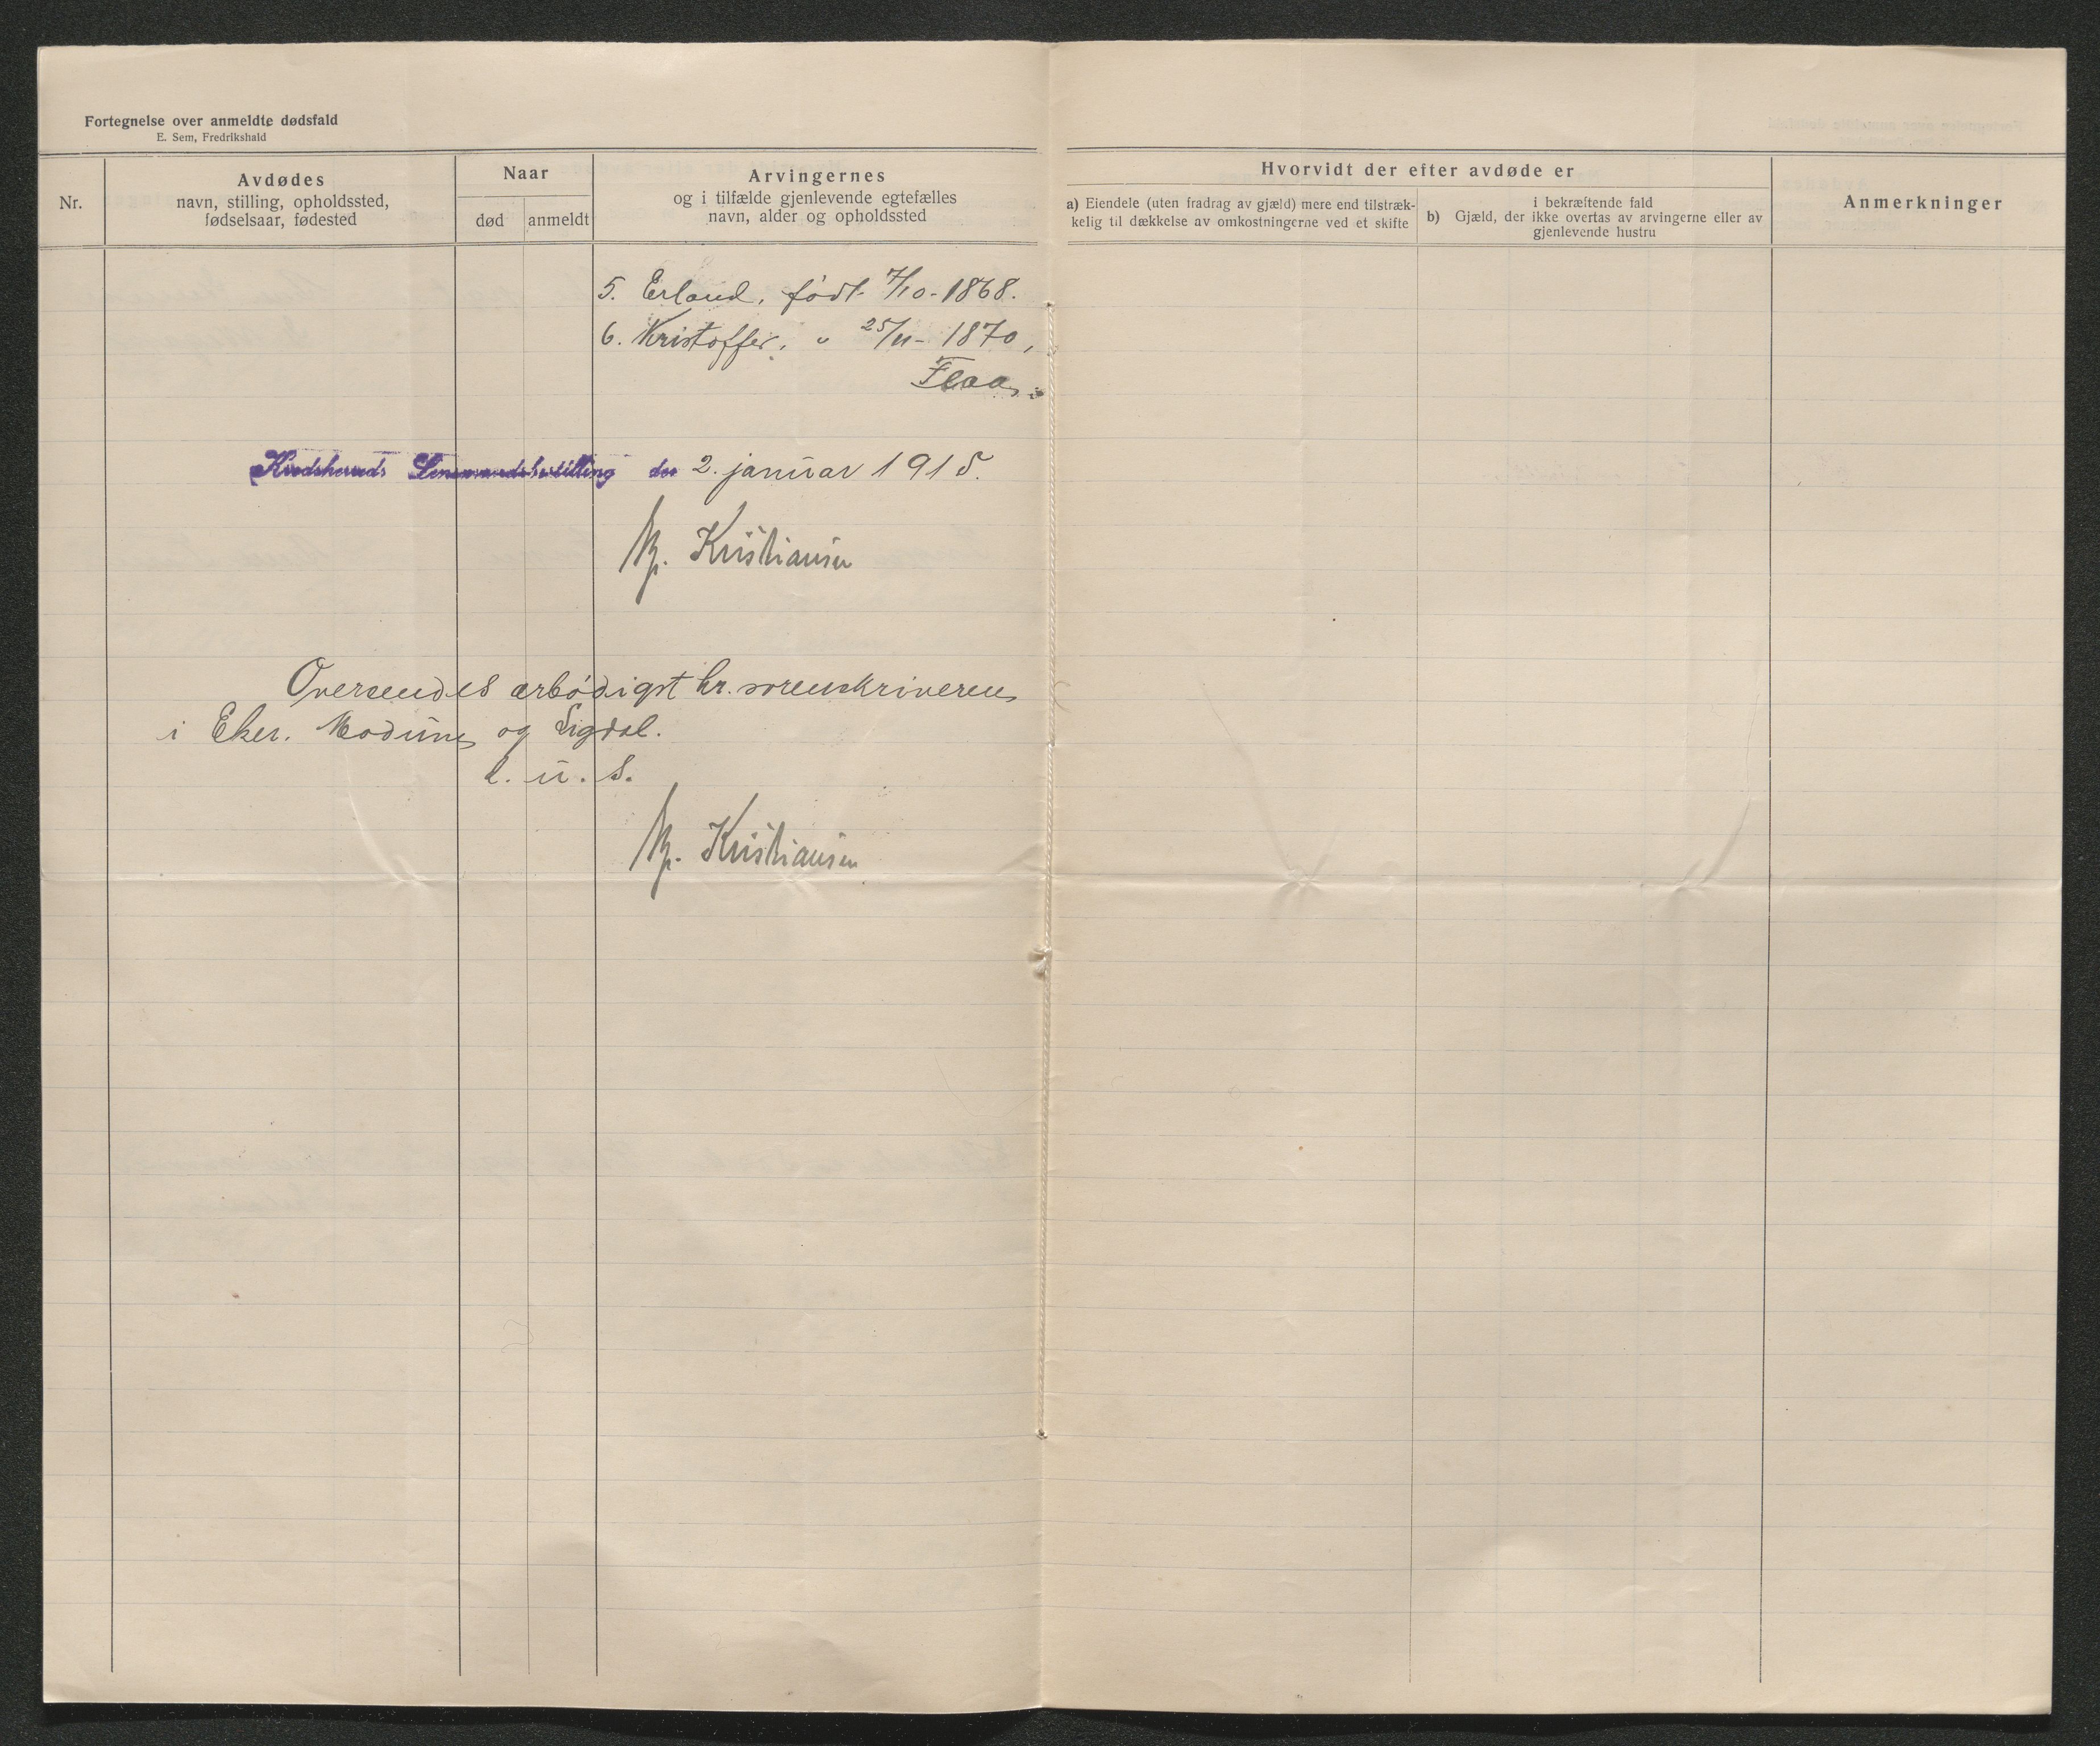 Fortegnelse over anmeldte dødsfald
E. Sem, Fredrikshald
Nr.
Avdødes
navn, stilling, opholdssted,
fødselsaar, fødested
Naar
død
anmeldt
Arvingernes
og i tilfælde gjenlevende egtefælles
navn, alder og opholdssted
Hvorvidt der efter avdøde er
a) Eiendele (uten fradrag av gjæld) mere end tilstræk-
kelig til dækkelse av omkostningerne ved et skifte
i bekræftende fald
b) Gjæld, der ikke overtas av arvingerne eller av
gjenlevende hustru
Anmerkninger
5. Erland, født 7/10-1868.
6. Kristoffer, " 25/11-1870,
Flaa
Krødsherreds Lensmandsbestilling den 2. januar 1915.
Kristiansen
Oversendes ærbødigst hr. sorenskriveren
i Eker, Modum og Sigdal.
d. u. s.
Kristiansen